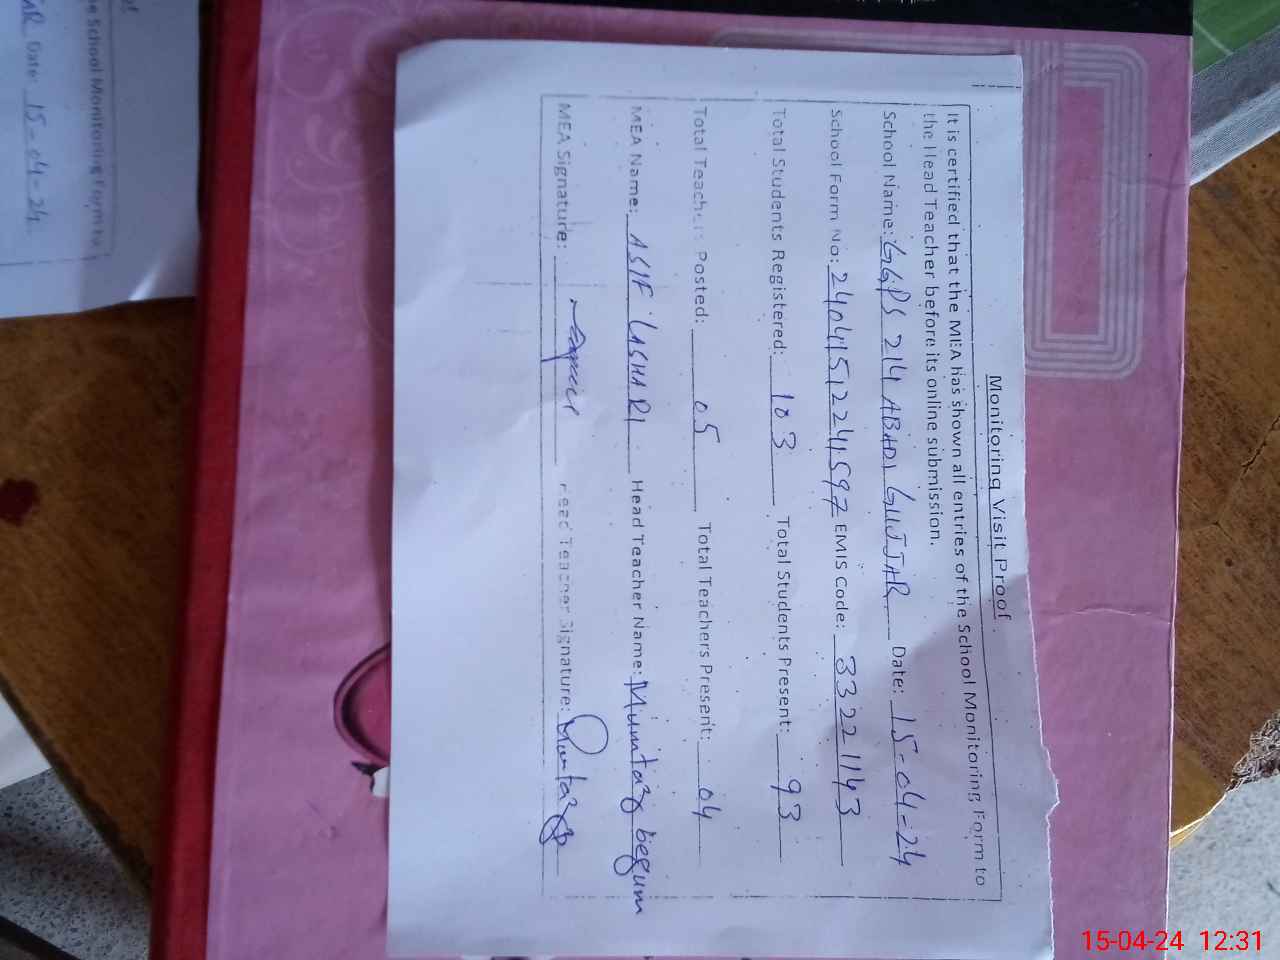 Monitoring Visit Proof
It is certified that the MEA has shown all entries of the School Monitoring Form to
the Head Teacher before its online submission.
School Name: GGPS 214 ABADI GUJJAR Date: 15-04-24
School Form No: EMIS Code: 33221143
Total Students Registered: 103 Total Students Present: 93
Total Teachers Posted: 05 Total Teachers Present: 04
MEA Name: ASIF LASHARI Head Teacher Name: Mumtaz begum
MEA Signature: Head Teacher Signature: Mumtaz
of
e School Monitoring Form to
AR Date: 15-04-24
15-04-24 12:31